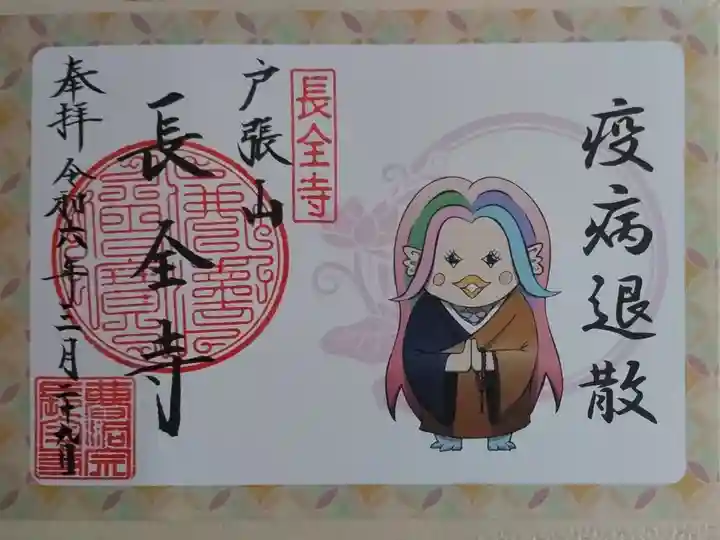 疫病退散
長全寺
戸張山
長全寺
奉拝 令和六年三月二十九日